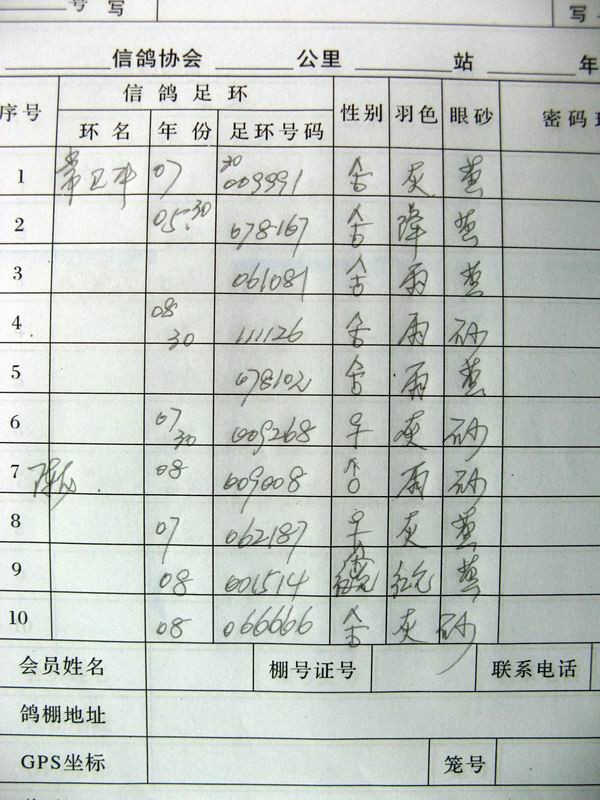 号 写
写
信鸽协会 公里 站 年
序号 信鸽足环 性别 羽色 眼砂 密码
环名 年份 足环号码
1 07 30 009991 灰 黄
2 05.30 078167 黄
3 061081 雨 黄
4 08 30 111126 雨 砂
5 078102 雨 黄
6 07 30 009268 灰 砂
7 08 009008 雨 砂
8 07 062187 灰 黄
9 08 001514 黄
10 08 066666 灰 砂
会员姓名 棚号证号 联系电话
鸽棚地址
GPS坐标 笼号